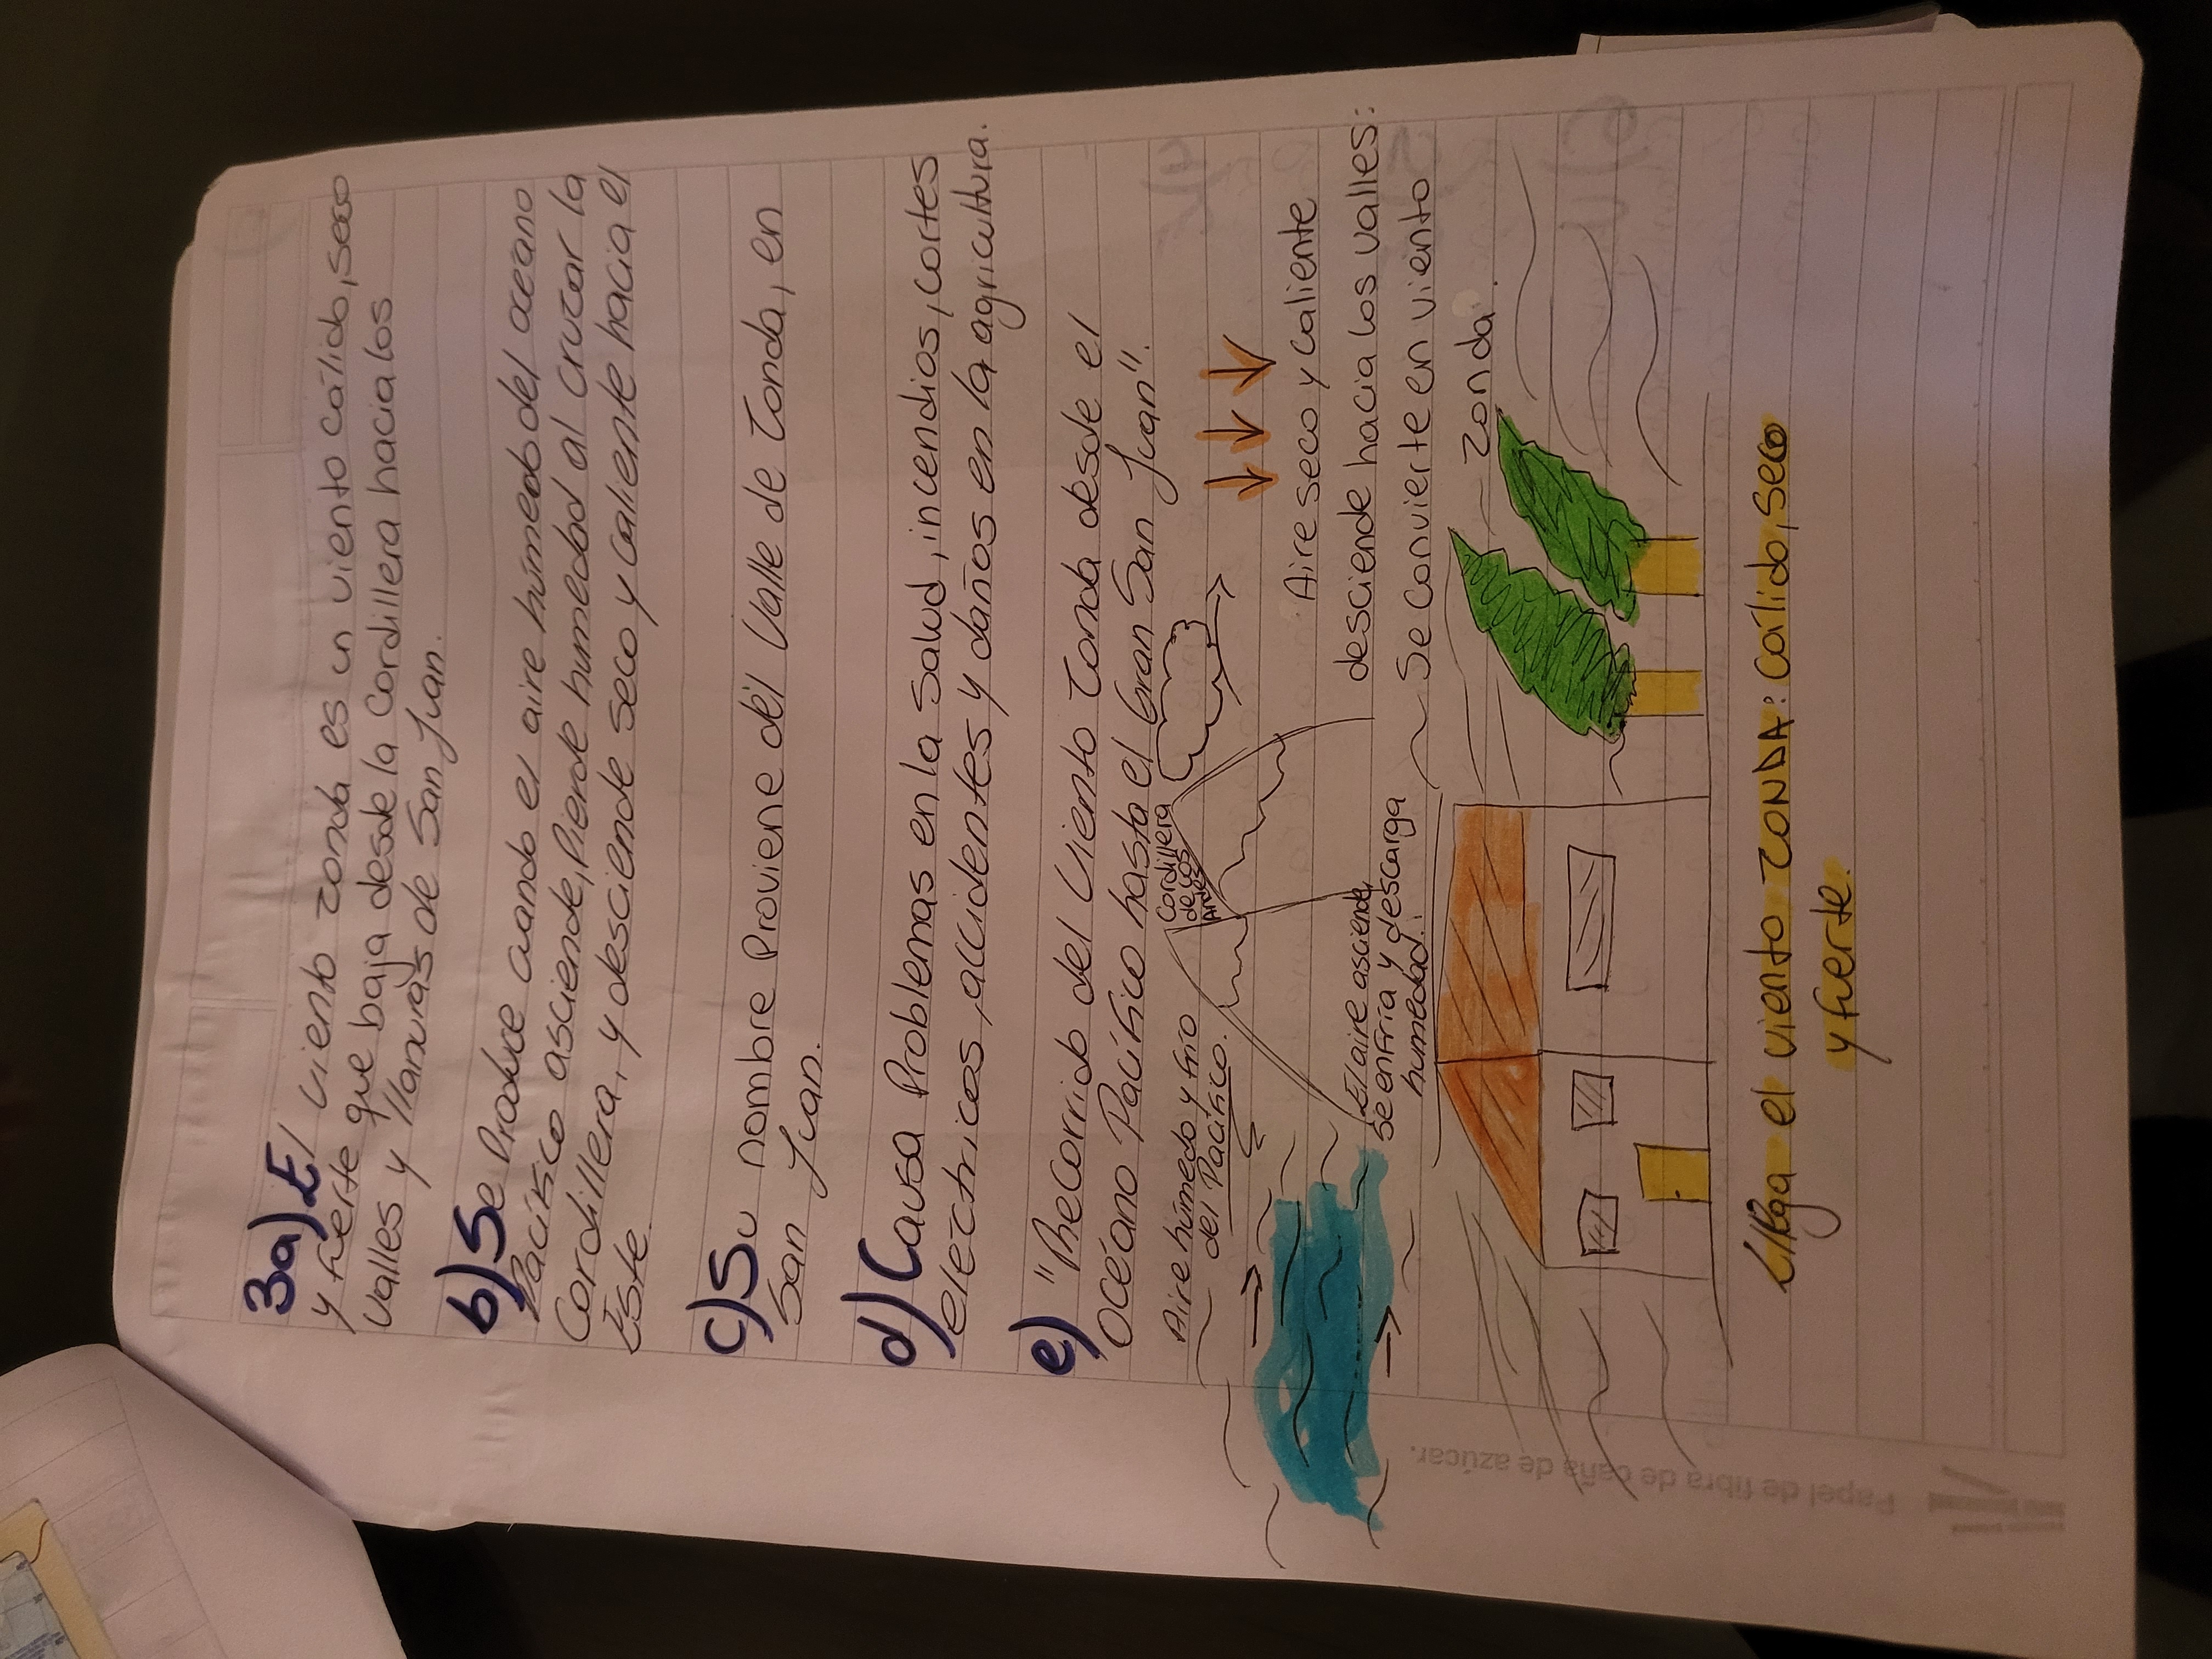 3a) El viento zonda es un viento cálido, seco
y fuerte que baja desde la Cordillera hacia los
valles y llanuras de San Juan.
b) Se Produce cuando el aire húmedo del oceano
Pacífico asciende, Pierde humedad al cruzar la
Cordillera, y desciende seco y caliente hacia el
Este.
c) Su nombre Proviene del Valle de Zonda, en
San Juan.
d) Causa Problemas en la salud, incendios, cortes
eléctricos, accidentes y daños en la agricultura.
e) "Recorrido del Viento Zonda desde el
Océano Pacífico hasta el Gran San Juan".
Aire húmedo y frío
del Pacífico.
Cordillera
de los
Andes
El aire asciende,
se enfría y descarga
humedad.
Aire seco y caliente
desciende hacia los valles:
Se convierte en viento
zonda.
Llega el viento ZONDA: Cálido, seco
y fuerte.
Papel de fibra de caña de azúcar.